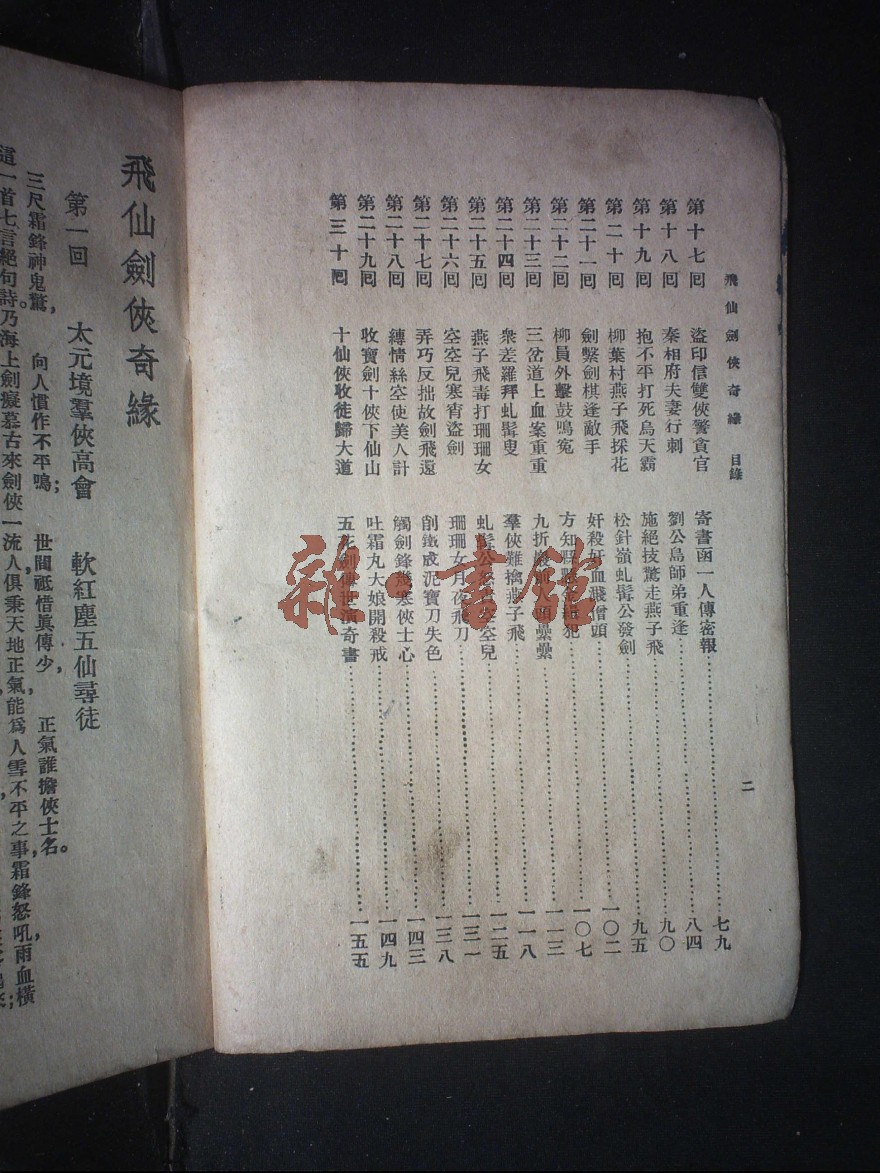 飛仙劍俠奇緣 目錄
第十七囘 盜印信雙俠警貪官 寄書函一人傳密報……七九
第十八囘 秦相府夫妻行刺 劉公島師弟重逢……八四
第十九囘 抱不平打死烏天霸 施絕技驚走燕子飛……九〇
第二十囘 柳葉村燕子飛採花 松針嶺虬髯公發劍……九五
第二十一囘 劍擊劍棋逢敵手 奸殺奸血濺僧頭……一〇二
第二十二囘 柳員外擊鼓鳴寃 方知縣犯……一〇七
第二十三囘 三岔道上血案重重 九折巖前人頭壘壘……一一三
第二十四囘 衆差羅拜虬髯叟 羣俠難擒燕子飛……一一八
第二十五囘 燕子飛毒打珊珊女 虬髯公怒空空兒……一二五
第二十六囘 空空兒寒宵盜劍 珊珊女月夜飛刀……一三一
第二十七囘 弄巧反拙故劍飛還 削鐵成泥寶刀失色……一三八
第二十八囘 縛情絲空使美人計 觸劍鋒幾寒俠士心……一四三
第二十九囘 收寶劍十俠下仙山 吐霜丸大娘開殺戒……一四九
第三十囘 十仙俠收徒歸大道 五花劍傳世演奇書……一五五
二
飛仙劍俠奇緣
第一回 太元境羣俠高會 軟紅塵五仙尋徒
三尺霜鋒神鬼驚， 向人慣作不平鳴； 世間祗惜眞傳少， 正氣誰擔俠士名。
這一首七言絕句詩乃海上劍癡慕古來劍俠一流人俱秉天地正氣能爲人雪不平之事霜鋒怒吼雨血橫
雜·書館